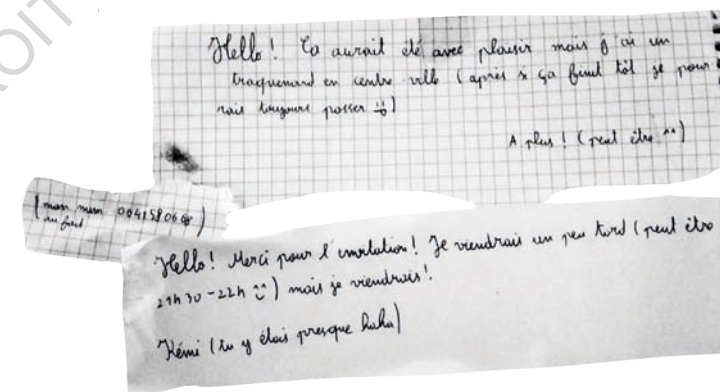 ROIT
Hello ! Ca aurait été avec plaisir mais j'ai un
traquenard en centre ville (après si ça finit tôt je pour
rais toujours passer :))
A plus ! (peut être ^^)
(mon num 0041580698)
au fait
Hello ! Merci pour l'invitation ! Je viendrais un peu tard (peut être
21h30-22h ^^) mais je viendrais !
Kémi (tu y étais presque haha)